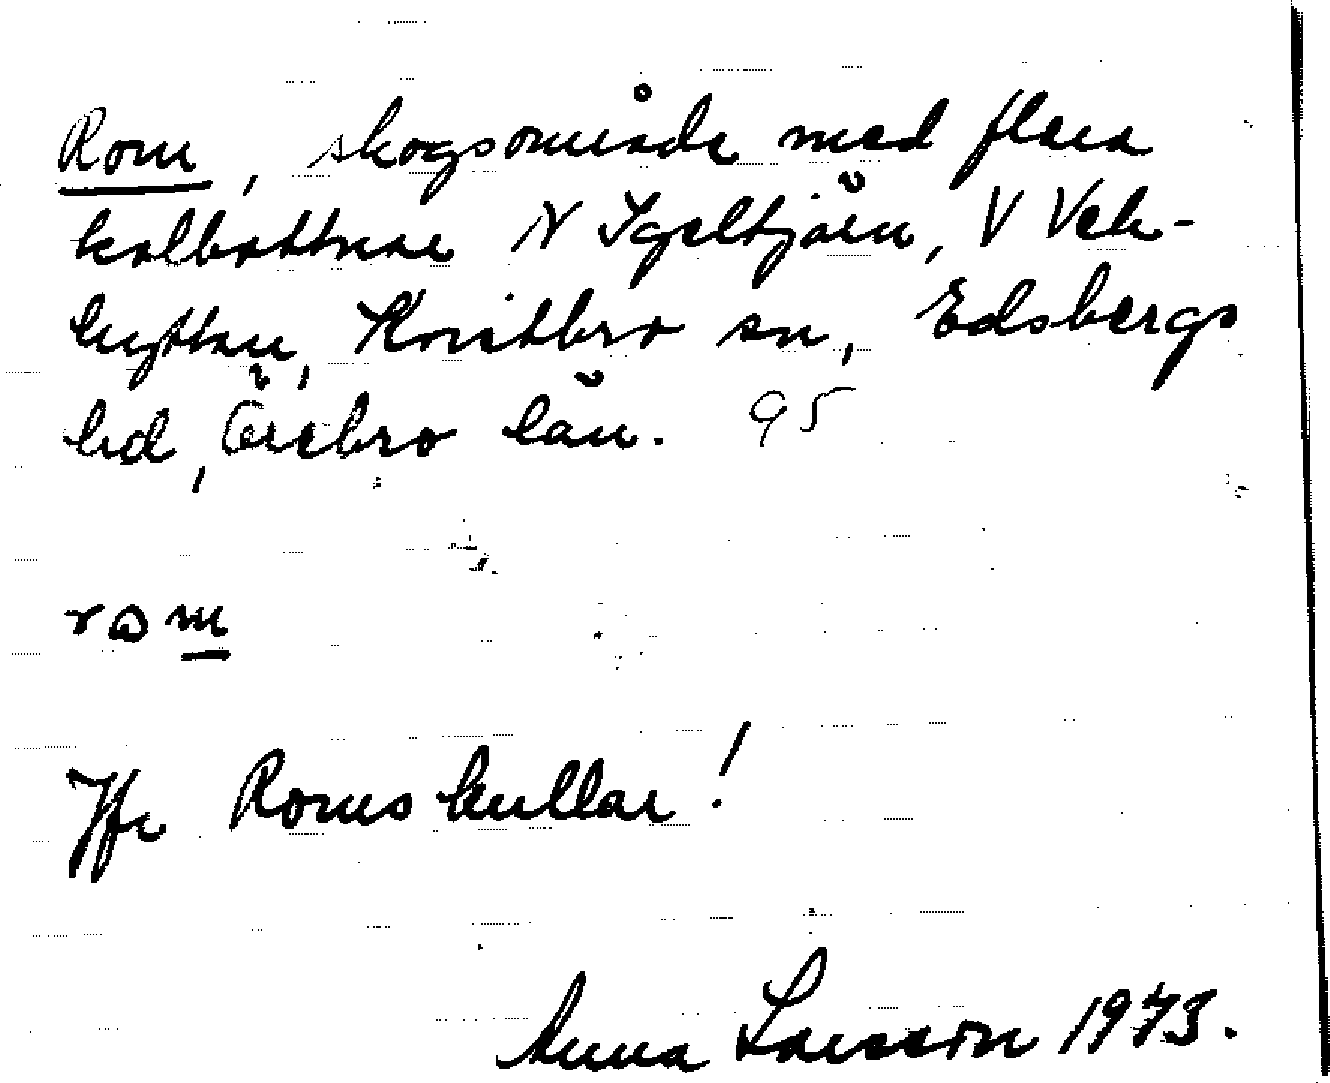 Rom, skogsområde med flera
kolbottnar N Igeltjärn, V Vek-
hyttan, Kvistbro sn, Edsbergs
hd, Örebro län. 95
rωm
Jfr Romskullar!
Anna Larsson 1973.